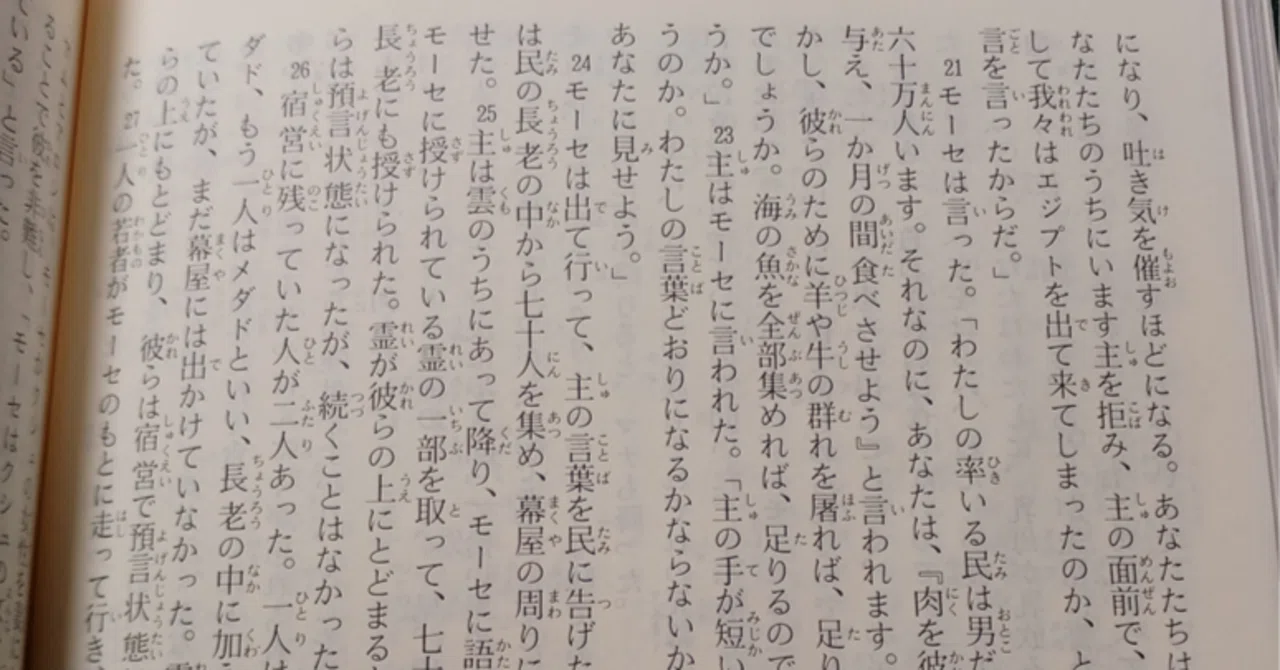 になり、吐き気を催すほどになる。あなたたちは
なたたちのうちにいます主を拒み、主の面前で、
して我々はエジプトを出て来てしまったのか、と
言を言ったからだ。」
21モーセは言った。「わたしの率いる民は男だ
六十万人います。それなのに、あなたは、『肉を彼
与え、一か月の間食べさせよう』と言われます。
かし、彼らのために羊や牛の群れを屠れば、足り
でしょうか。海の魚を全部集めれば、足りるので
うか。」23主はモーセに言われた。「主の手が短い
うのか。わたしの言葉どおりになるかならないか
あなたに見せよう。」
24モーセは出て行って、主の言葉を民に告げた
は民の長老の中から七十人を集め、幕屋の周りに
せた。25主は雲のうちにあって降り、モーセに語
モーセに授けられている霊の一部を取って、七十
長老にも授けられた。霊が彼らの上にとどまると
らは預言状態になったが、続くことはなかった
26宿営に残っていた人が二人あった。一人は
ダド、もう一人はメダドといい、長老の中に加
ていたが、まだ幕屋には出かけていなかった。霊
らの上にもとどまり、彼らは宿営で預言状態
た。27一人の若者がモーセのもとに走って行き
ている」と言った。